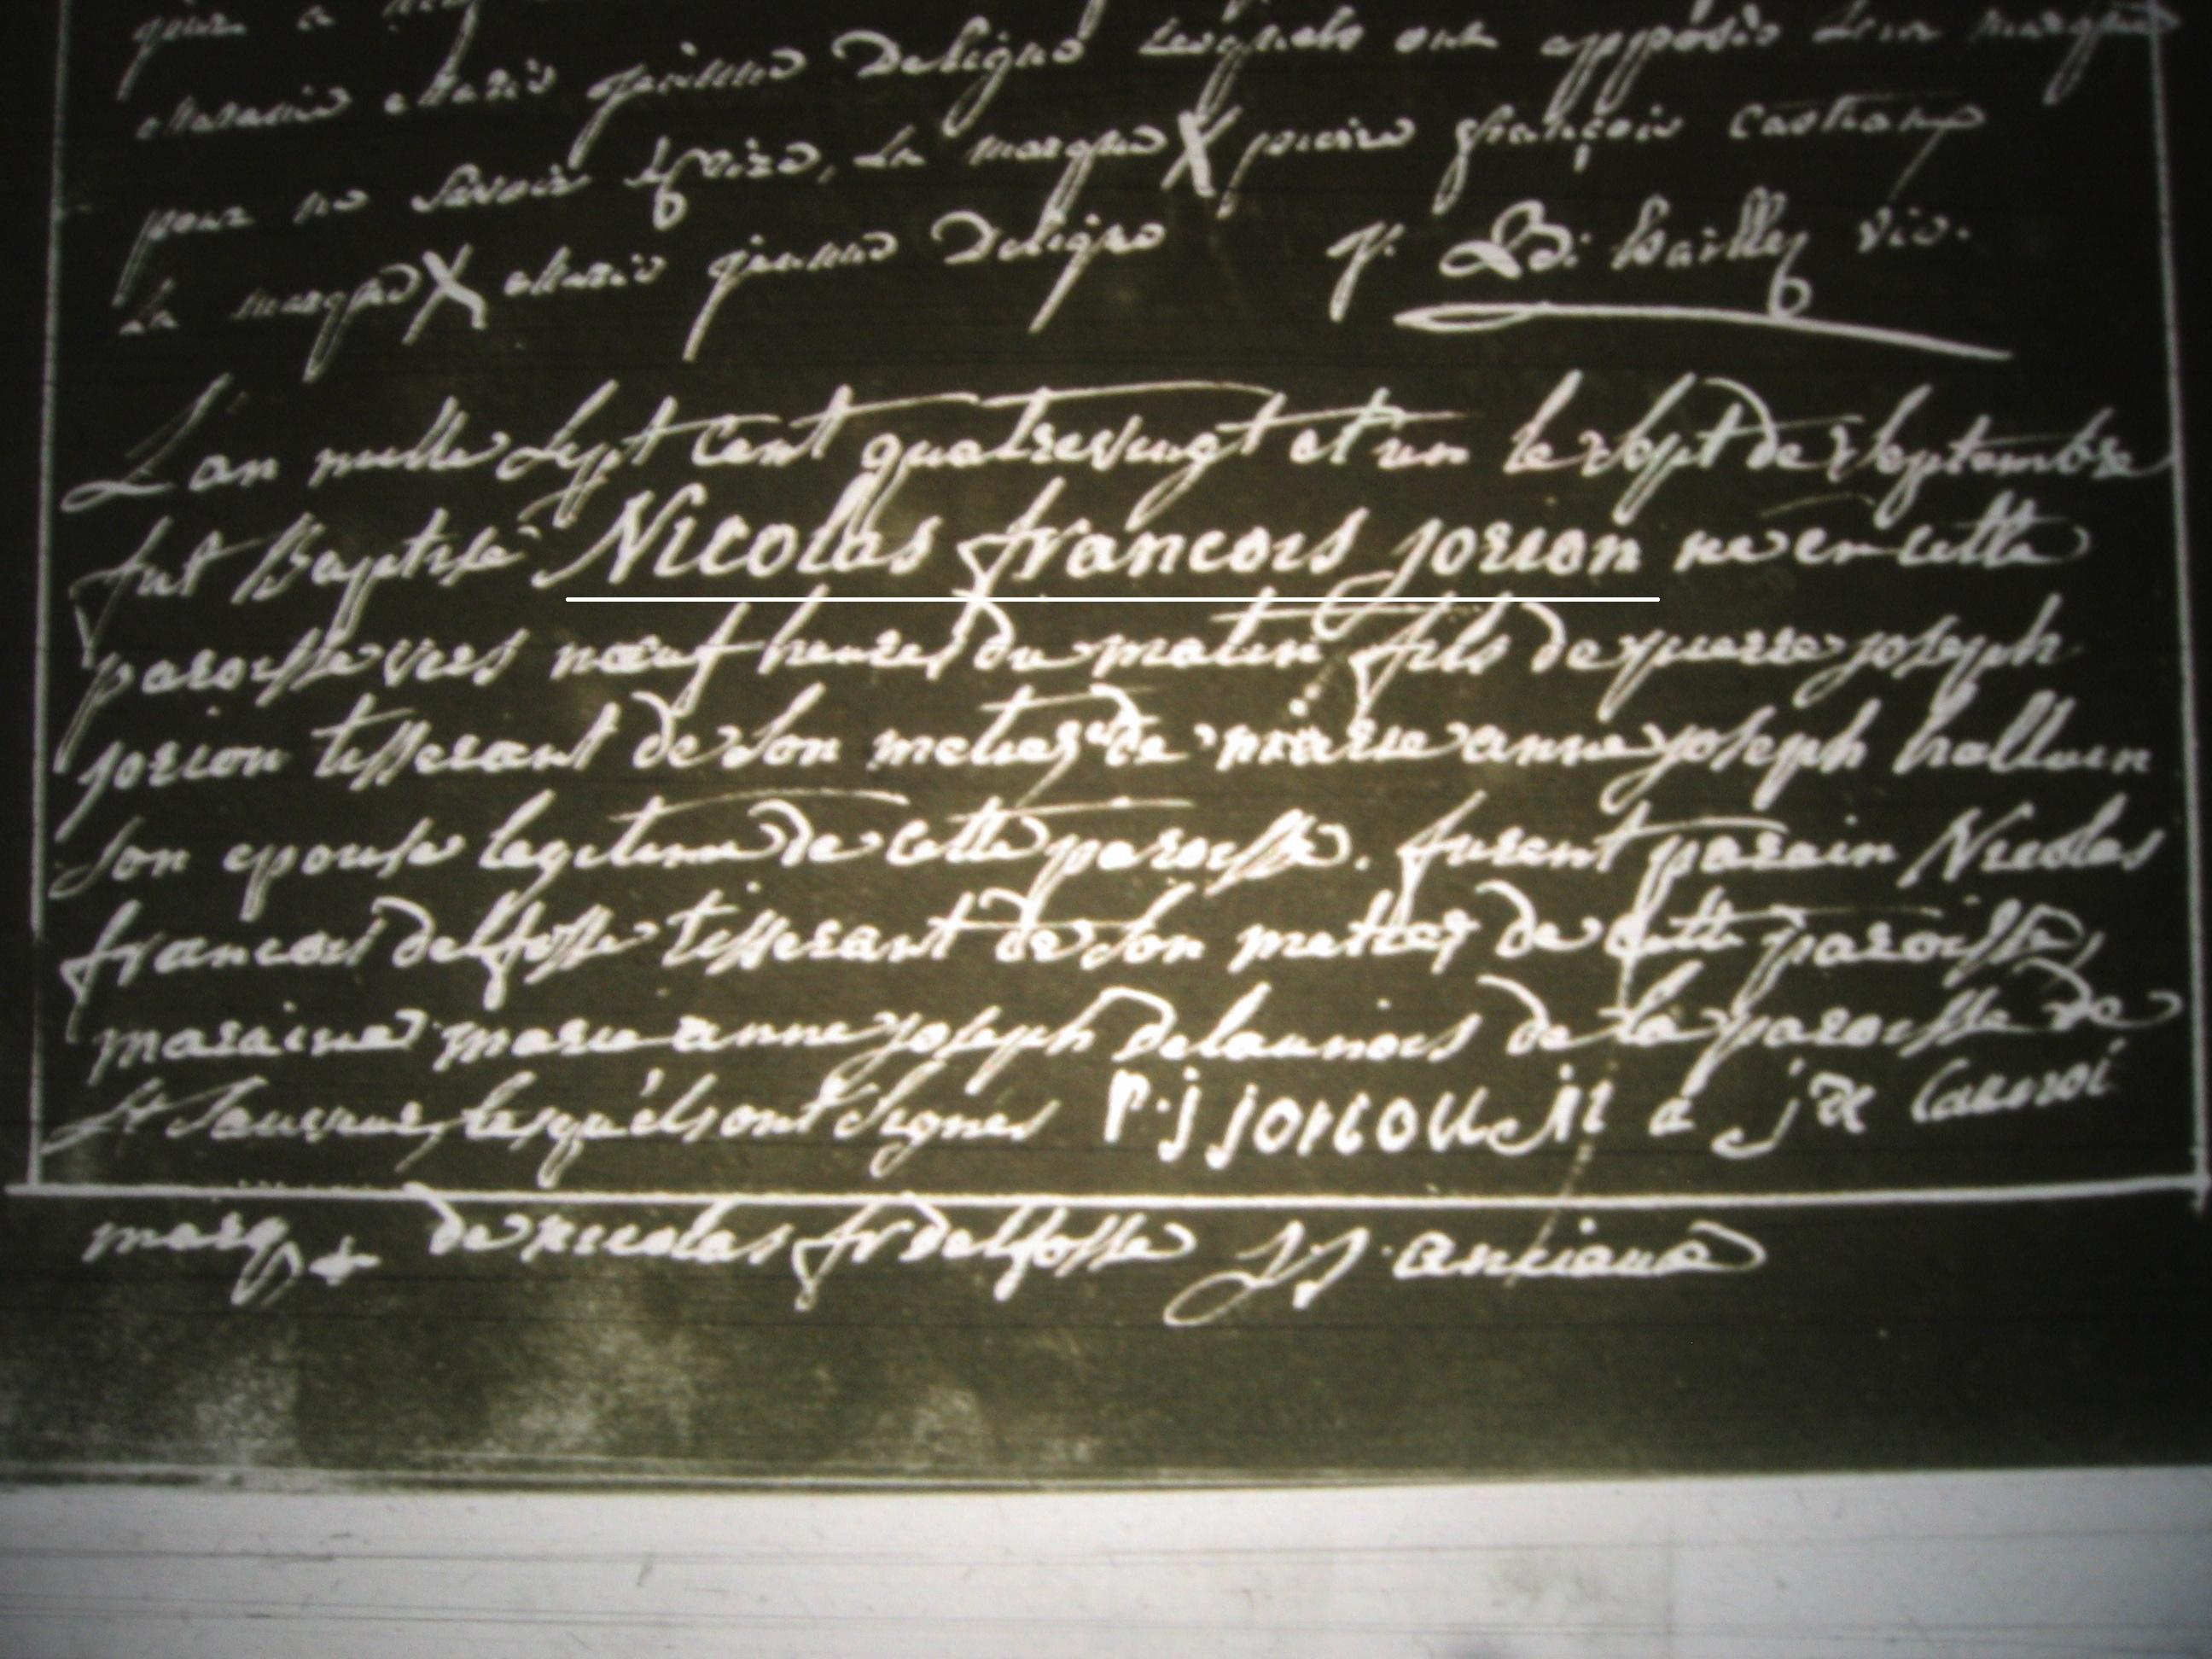 maraine marie jeanne Deligne lesquels ont apposés leur marque
pour ne savoir Ecrire, La marque X pierre françois Castrain
La marque X marie jeanne Deligne
L'an mille sept cent quatrevingt et un le sept de septembre
fut Baptisé Nicolas francois jorion né en cette
paroisse vers nœuf heures du matin fils de pierre joseph
jorion tisserant de son metier et de marie anne joseph halluin
son epouse legitime de cette paroisse. furent parain Nicolas
francois delfosse tisserant de son metier de cette paroisse,
maraine marie anne joseph Delaunois de la paroisse de
st sauveur, lesquels ont signés P.j jorion
marq + de nicolas fr delfosse